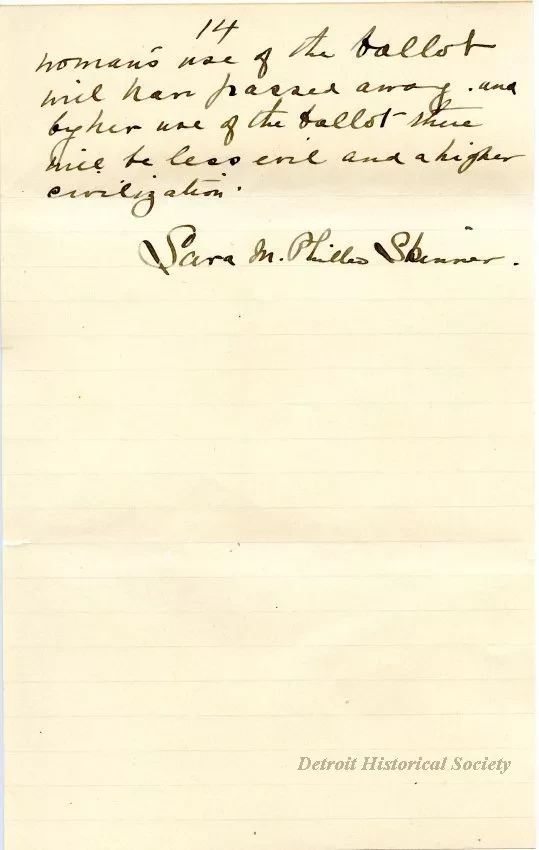 14
woman's use of the ballot
will have passed away. and
by her use of the ballot there
will be less evil and a higher
civilization.
Sara M. Philleo Skinner.
Detroit Historical Society